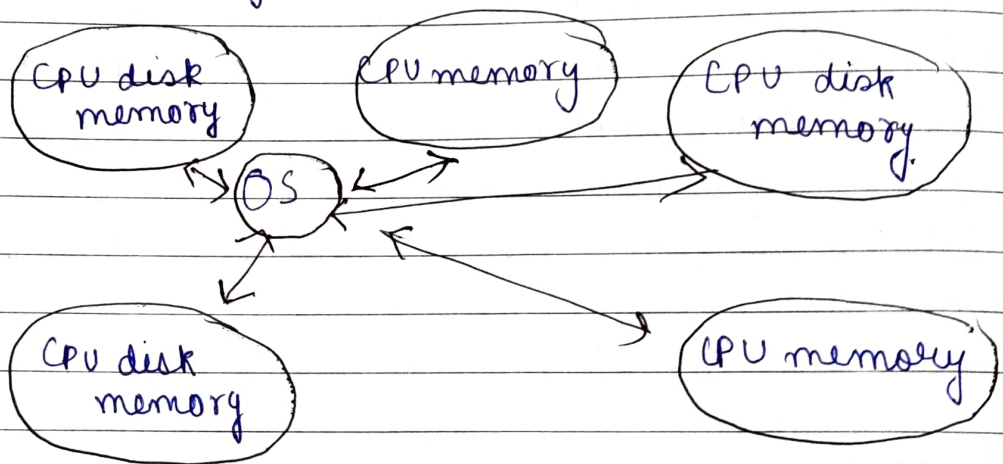 CPU disk
memory
CPU memory
CPU disk
memory.
OS
CPU disk
memory
CPU memory